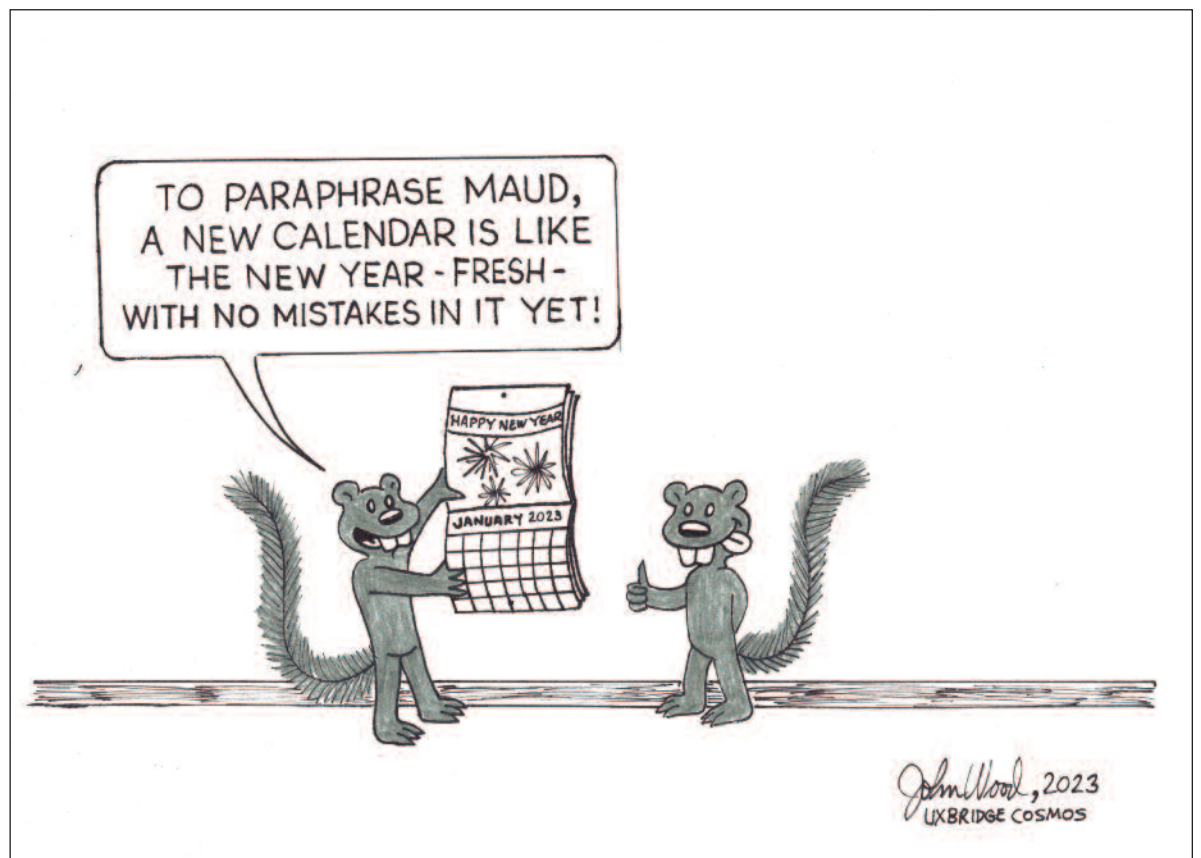 TO PARAPHRASE MAUD,
A NEW CALENDAR IS LIKE
THE NEW YEAR - FRESH -
WITH NO MISTAKES IN IT YET!
HAPPY NEW YEAR
JANUARY 2023
John Wood, 2023
UXBRIDGE COSMOS